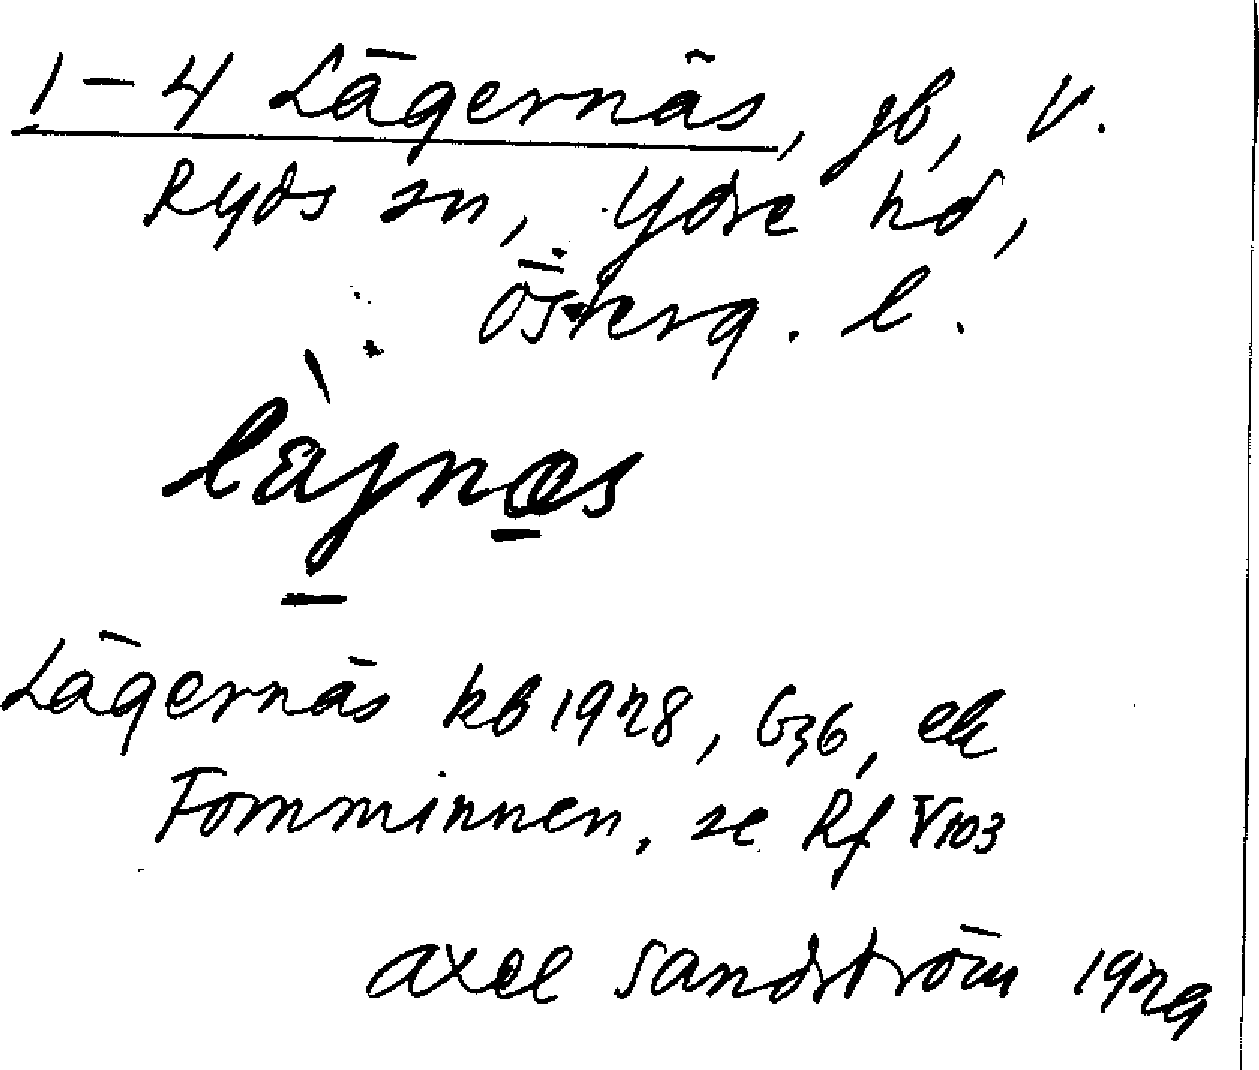 1–4 Lägernäs, gb, V.
Ryds sn, Ydre hd,
Österg. l.
làjnæs
Lägernäs kb 1928, G36, ek
Fornminnen, se Rf V 103
Axel Sandström 1929